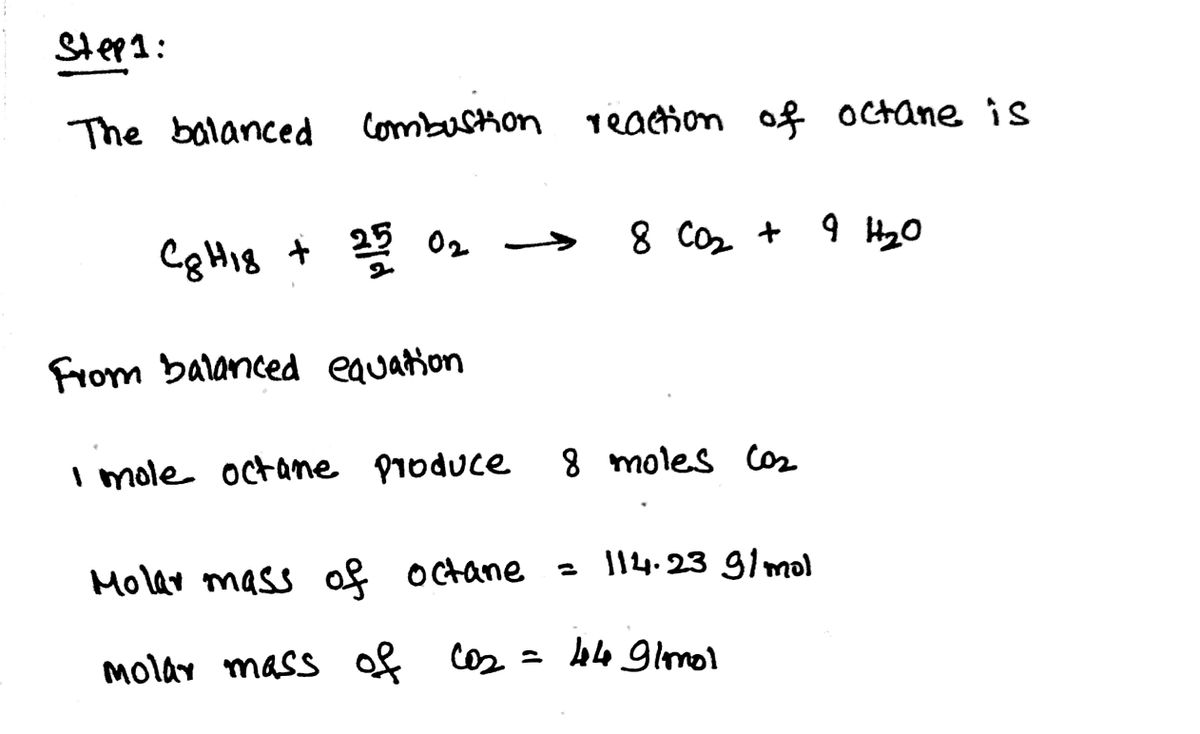 Step 1:
The balanced combustion reaction of octane is
C8H18 + 25/2 O2 → 8 CO2 + 9 H2O
From balanced equation
1 mole octane produce 8 moles CO2
Molar mass of octane = 114.23 g/mol
molar mass of CO2 = 44 g/mol